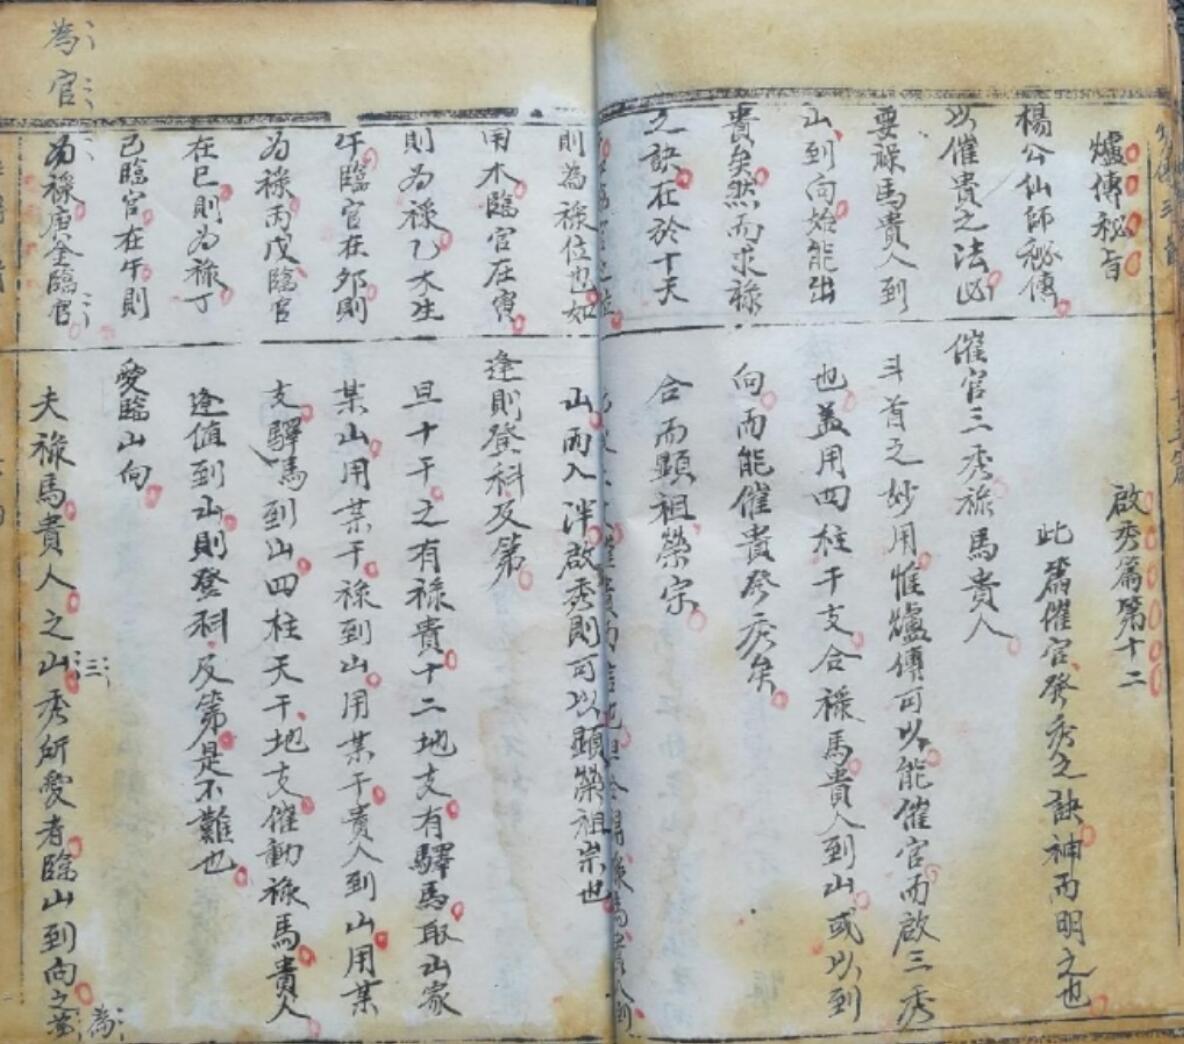 爐傳秘旨
楊公仙師秘傳
以催貴之法必
要祿馬貴人到
山到向始能出
貴矣然而求祿
之訣在於十天
啟秀篇第十二
此篇催官發秀之訣神而明之也
催官三秀祿馬貴人
斗首之妙用惟爐傳可以能催官而啟三秀
也蓋用四柱干支合祿馬貴人到山或以到
向而能催貴發秀矣
合而顯祖榮宗
則為祿位也如
用木臨官在寅
則為祿乙木生
午臨官在卯則
為祿丙戊臨官
在巳則為祿丁
己臨官在午則
為祿庚金臨官
山而入泮啟秀則可以顯榮祖宗也
逢則登科及第
旦十干之有祿貴十二地支有驛馬取山家
某山用某干祿到山用某干貴人到山用某
支驛馬到山四柱天干地支催動祿馬貴人
逢值到山則登科及第是不難也
愛臨山向
夫祿馬貴人之山三秀所愛者臨山到向之為
為官